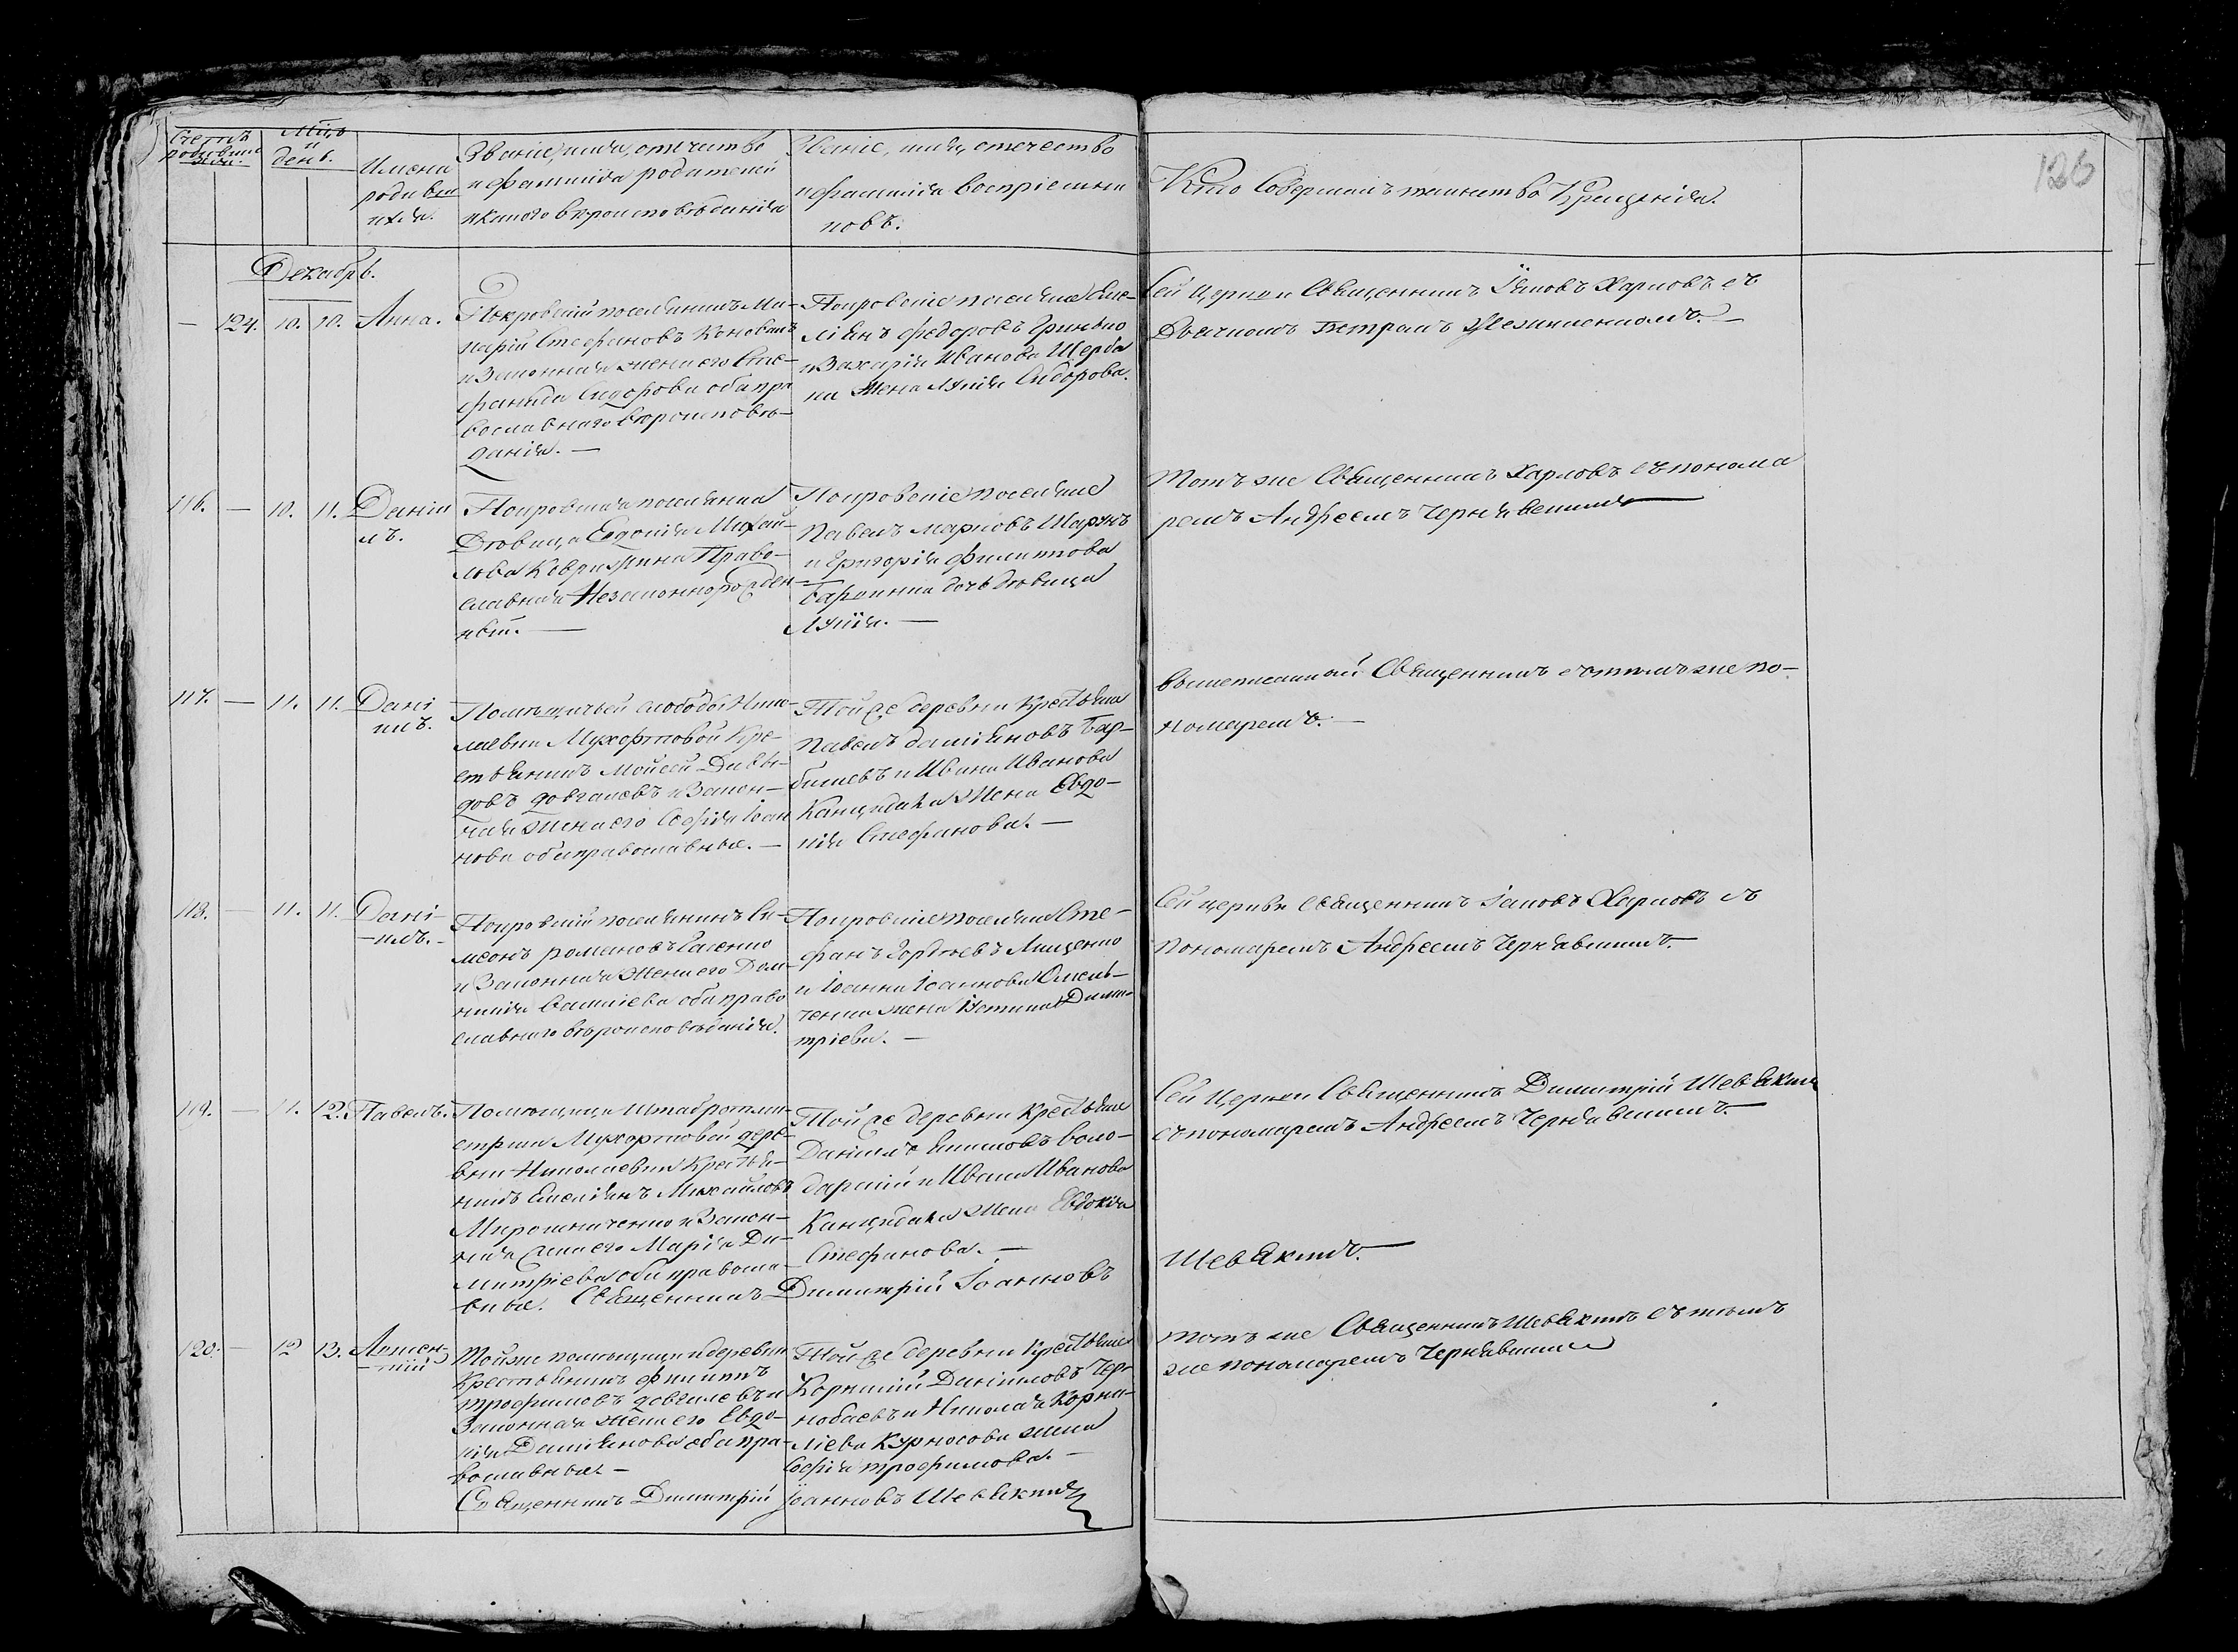 Счетъ родившихся.
Мцъ и день.
Имена
родивш
ихся.
Званіе, имя, отечество
и фамилія родителей
и какого вѣроисповѣданія
Званіе, имя, отечество
и фамилія воспріемни
ковъ.
Кто совершалъ таинство Крещенія.
126
Декабрь.
— 124. 10. 10. Анна.
Покровскій поселянинъ Ма-
карій Стефановъ Коноваль
и Законная жена его Сте-
фанида Сидорова оба пра
вославнаго вѣроисповѣ-
данія. —
Покровскіе поселяне Еме-
ліянъ Федоровъ Гринько
и Захарія Иванова Щерба
ка жена Лукія Сидорова.
Сей Церкви Священникъ Іаковъ Харловъ съ
Дьячкомъ Петромъ —
116. — 10. 11. Даніи
лъ.
Покровская поселянка
Дѣвица Евдокія Михай-
лова Право-
славная Незаконнорожден-
ный. —
Покровскіе поселяне
Павелъ Марковъ
и Григорія Филиппова
дочь дѣвица
Лукія. —
Тотъ же Священникъ Харловъ съ понома
ремъ Андреемъ Чернявскимъ
117. — 11. 11. Дані
илъ.
Помѣщичьей слободы Нико-
лаевки Мухортовой Кре-
стьянинъ Мойсей Давы-
довъ Довгалевъ и Закон-
ная жена его Софія Іоан
нова оба православные. —
Той же деревни Крестьяне
Павелъ Даміановъ Бар-
башевъ и Ивана Иванова
Канцидала жена Евдо-
кія Стефанова. —
вышеписанный Священникъ съ тѣмъ же по-
номаремъ. —
118. — 11. 11. Дані-
-илъ. -
Покровскій поселянинъ Си-
меонъ Романовъ
и Законная жена его Дом-
никія Василіева оба право
славнаго вѣроисповѣданія.
Покровскіе поселяне Сте-
фанъ Гордѣевъ Лищенко
и Іоанна Іоаннова Омель-
ченка жена Устинія Дими-
тріева. —
Сей церкви Священникъ Іаковъ Харловъ съ
пономаремъ Андреемъ Чернявскимъ. —
119. — 11. 12. Павелъ.
Помѣщицы Штабротми-
стрши Мухортовой дере-
вни Николаевки Крестья-
нинъ Емеліянъ Михайловъ
Мирошниченко и Закон-
ная жена его Марія Ди-
митріева оба правосла-
вные. Священникъ Димитрій Іоанновъ
Той же деревни Крестьяне
Даніилъ Акимовъ Воло-
дарскій и Ивана Иванова
Канцидала жена Евдокія
Стефанова. —
Сей Церкви Священникъ Димитрій Шевякинъ
съ пономаремъ Андреемъ Чернявскимъ. —
Шевякинъ. —
120. — 12 13. Авксен-
-тій
Тойже помѣщицы и деревни
Крестьянинъ Филиппъ
Трофимовъ Довгалевъ и
Законная жена его Евдо-
кія Даміянова оба пра-
вославные. —
Той же деревни Крестьяне
Корнилій Даніиловъ Чер-
нобаевъ и Николая Корни-
ліева Курносова жена
Софія Трофимова. —
Священникъ Димитрій Іоанновъ Шевякинъ
Тотъ же Священникъ Шевякинъ съ тѣмъ
же пономаремъ Чернявскимъ